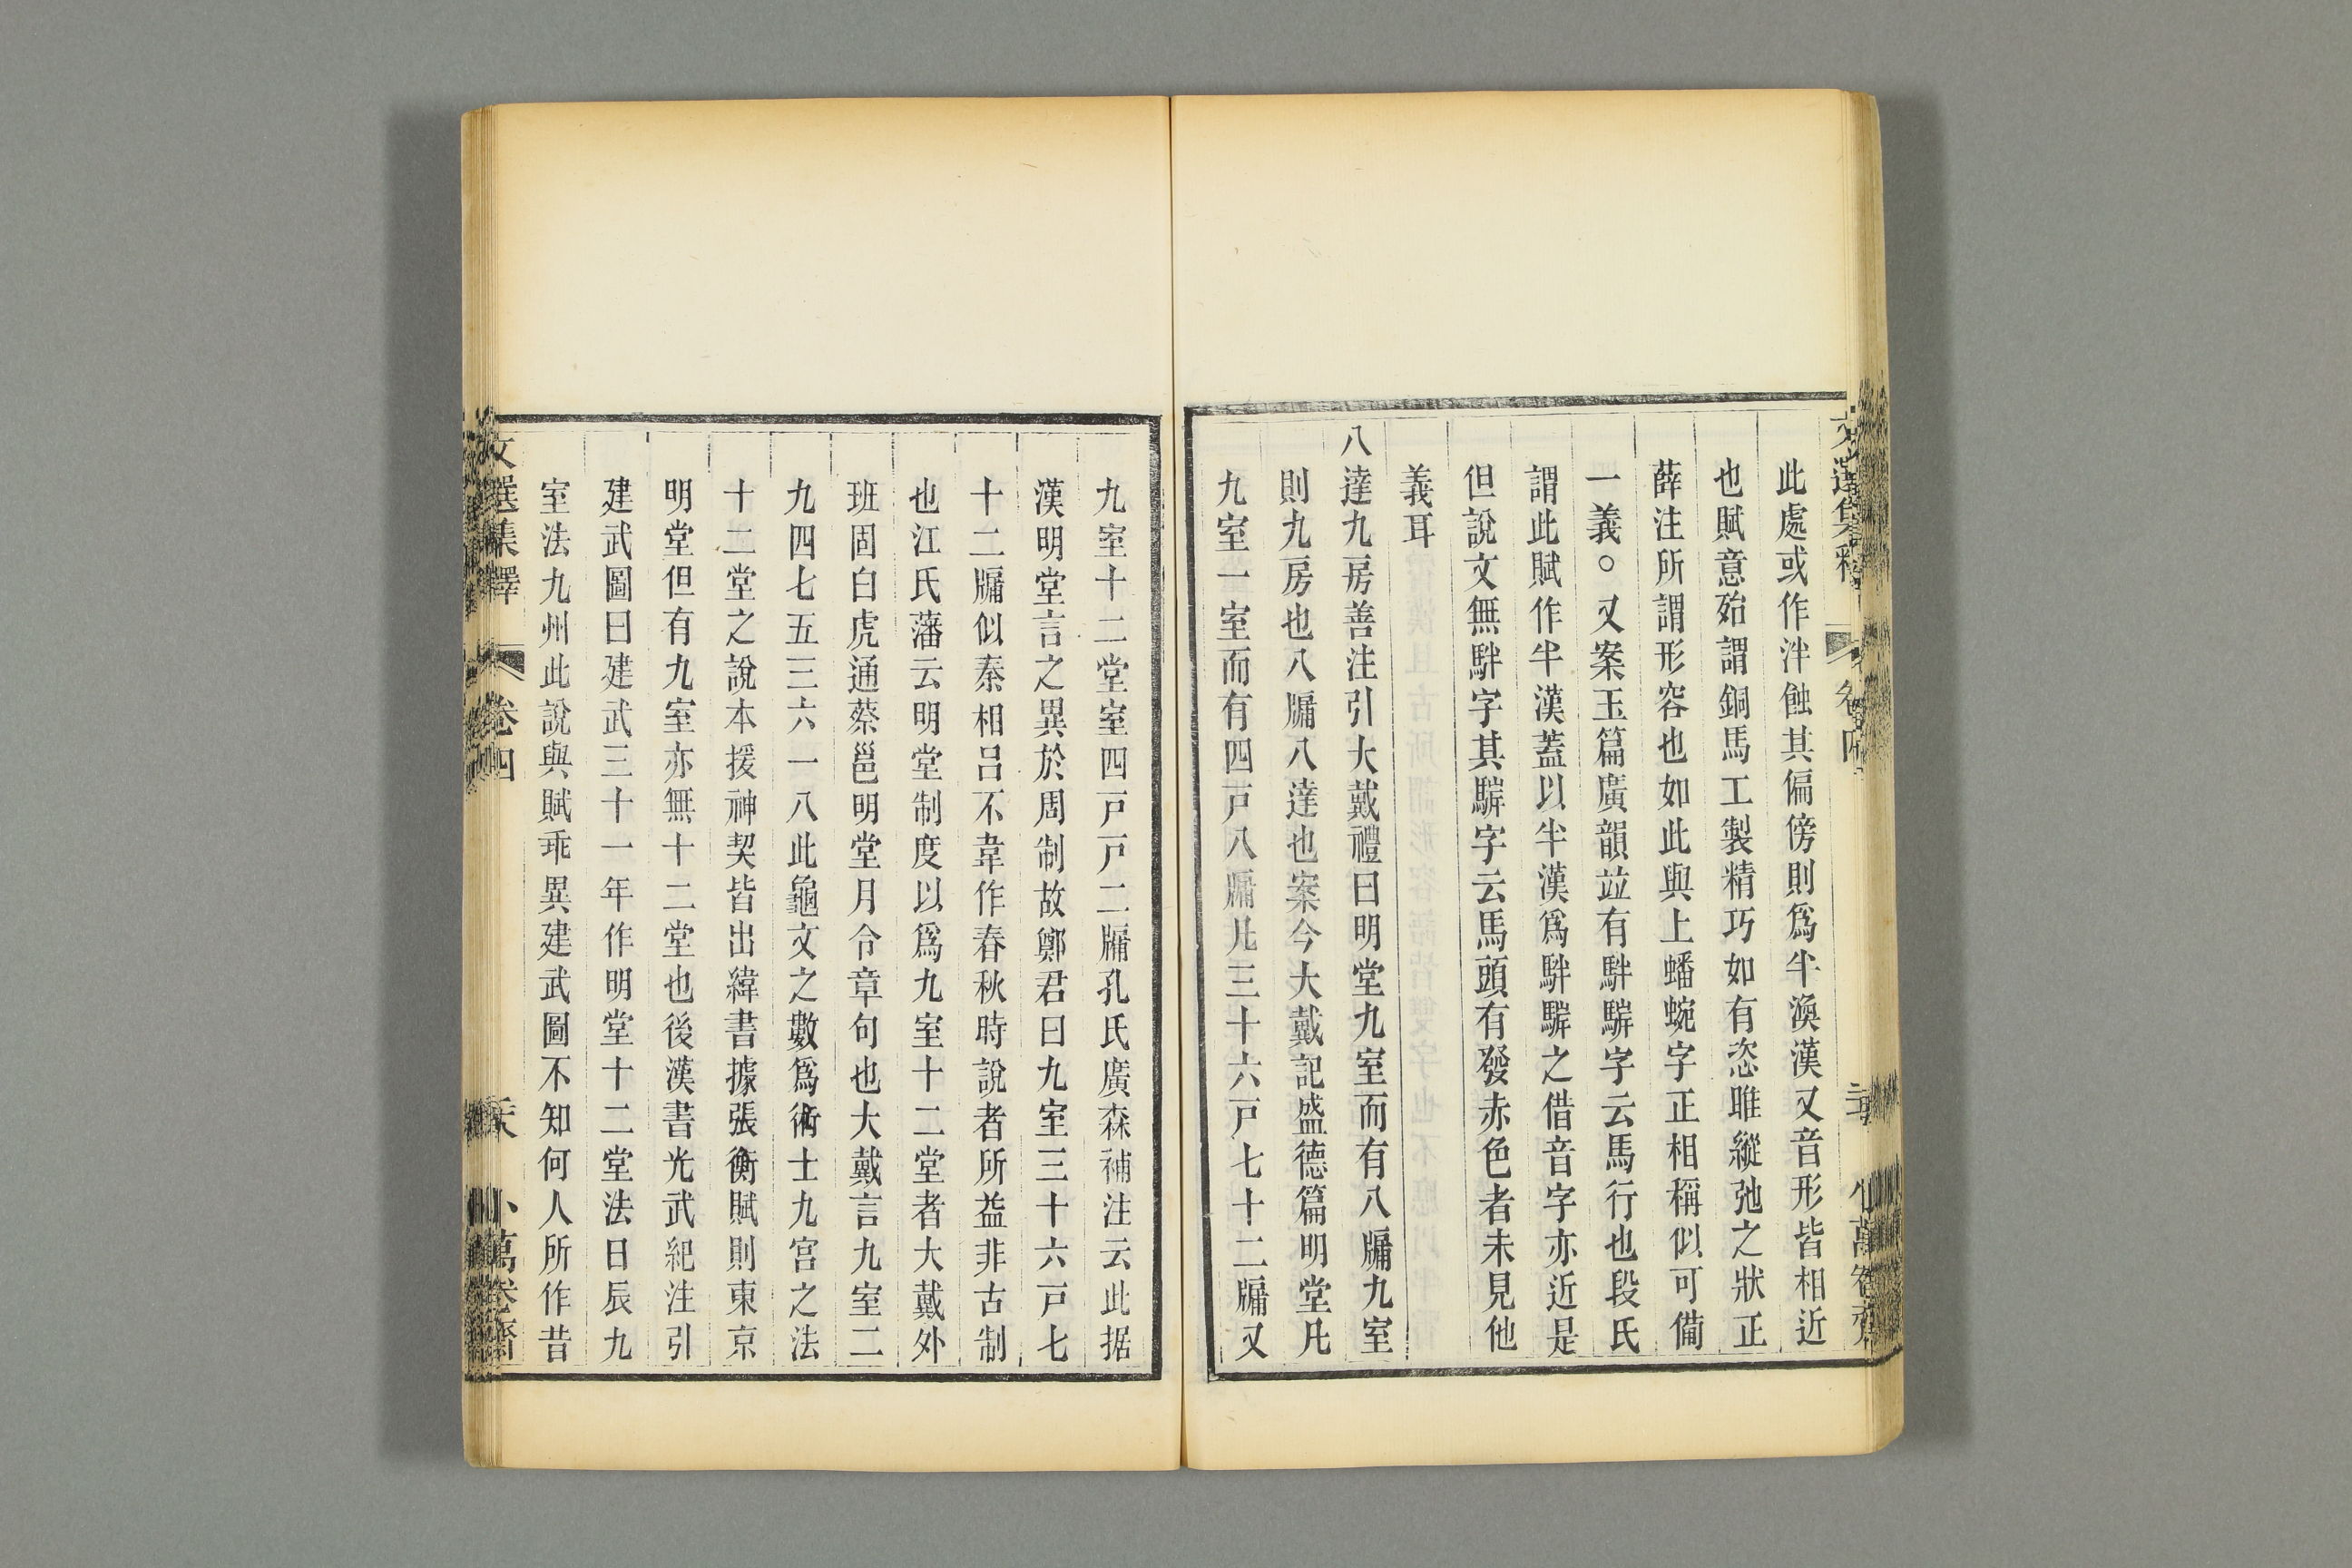 此處或作泮蝕其偏傍則爲半渙漢又音形皆相近
也賦意殆謂銅馬工製精巧如有恣睢縱弛之狀正
薛注所謂形容也如此與上蟠蜿字正相稱似可備
一義○又案玉篇廣韻竝有駢騨字云馬行也段氏
謂此賦作半漢蓋以半漢爲駢騨之借音字亦近是
但說文無駢字其騨字云馬頭有發赤色者未見他
義耳
八達九房善注引大戴禮曰明堂九室而有八牖九室
則九房也八牖八達也案今大戴記盛德篇明堂凡
九室一室而有四戸八牖凡三十六戸七十二牖又
九室十二堂室四戸戸二牖孔氏廣森補注云此据
漢明堂言之異於周制故鄭君曰九室三十六戸七
十二牖似秦相呂不韋作春秋時說者所益非古制
也江氏藩云明堂制度以爲九室十二堂者大戴外
班固白虎通蔡邕明堂月令章句也大戴言九室二
九四七五三六一八此龜文之數爲術士九宮之法
十二堂之說本援神契皆出緯書據張衡賦則東京
明堂但有九室亦無十二堂也後漢書光武紀注引
建武圖曰建武三十一年作明堂十二堂法日辰九
室法九州此說與賦乖異建武圖不知何人所作昔
文選集釋
卷四
小萬卷齋